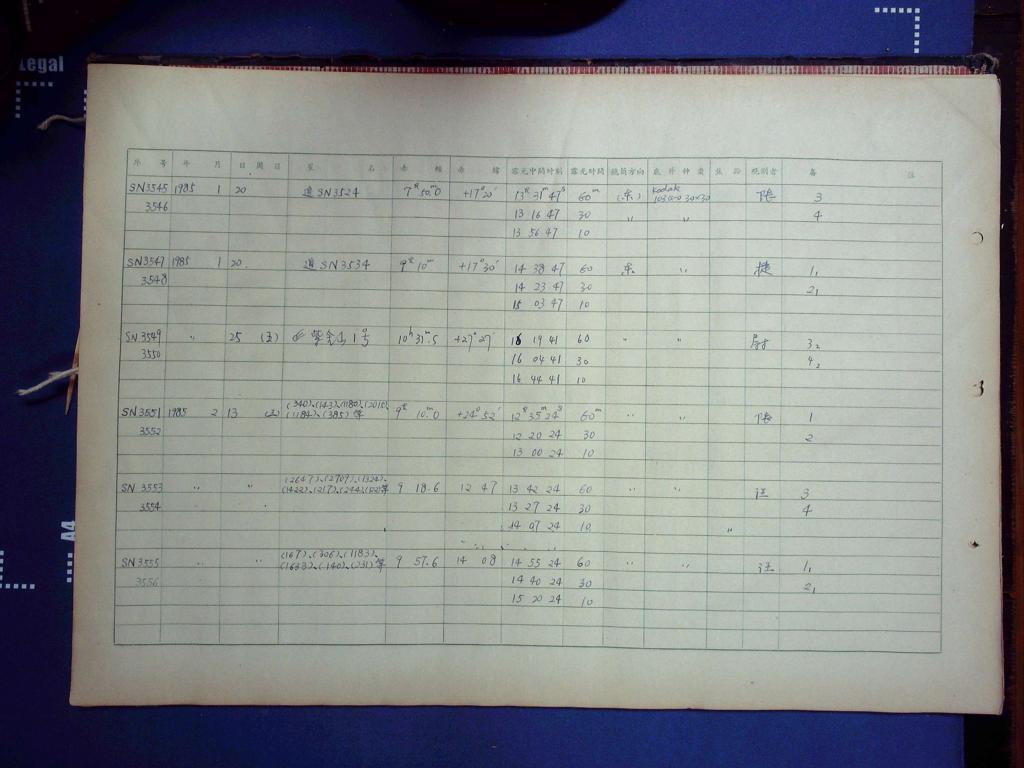 Legal
序 号 年 月 日 周 日 星 名 赤 經 赤 緯 露光中間時刻 露光時間 鏡筒方向 底片种类 焦距 观測者 备 註
SN3545 1985 1 20 追SN3524 7ʰ 50ᵐ.0 +17°20′ 13ʰ 31ᵐ 47ˢ 60ᵐ (东) Kodak 103a-O 30×30 陈 3
3546 13 16 47 30 〃 〃 4
13 56 47 10
SN3547 1985 1 20. 追SN3534 9ʰ 10ᵐ +17°30′ 14 38 47 60 东 〃 1₁
3548 14 23 47 30 2₁
15 03 47 10
SN3549 〃 25 (五) 紫金山1号 10ʰ 31ᵐ.5 +27°27′ 16 19 41 60 〃 〃 3₂
3550 16 04 41 30 4₂
16 44 41 10
SN3551 1985 2 13 (三) (340)、(143)、(1180)、(2010)、(1184)、(385)等 9ʰ 10ᵐ.0 +24°52′ 12ʰ 35ᵐ 24ˢ 60ᵐ 〃 〃 陈 1
3552 12 20 24 30 2
13 00 24 10
SN 3553 〃 〃 (2647)、(2709)、(1324)、(1422)、(217)、(244)、(52)等 9 18.6 12 47 13 42 24 60 〃 〃 汪 3
3554 13 27 24 30 4
14 07 24 10 〃
SN3555 〃 〃 (167)、(306)、(1183)、(1633)、(140)、(231)等 9 57.6 14 08 14 55 24 60 〃 〃 汪 1₁
3556 14 40 24 30 2₁
15 20 24 10
A4